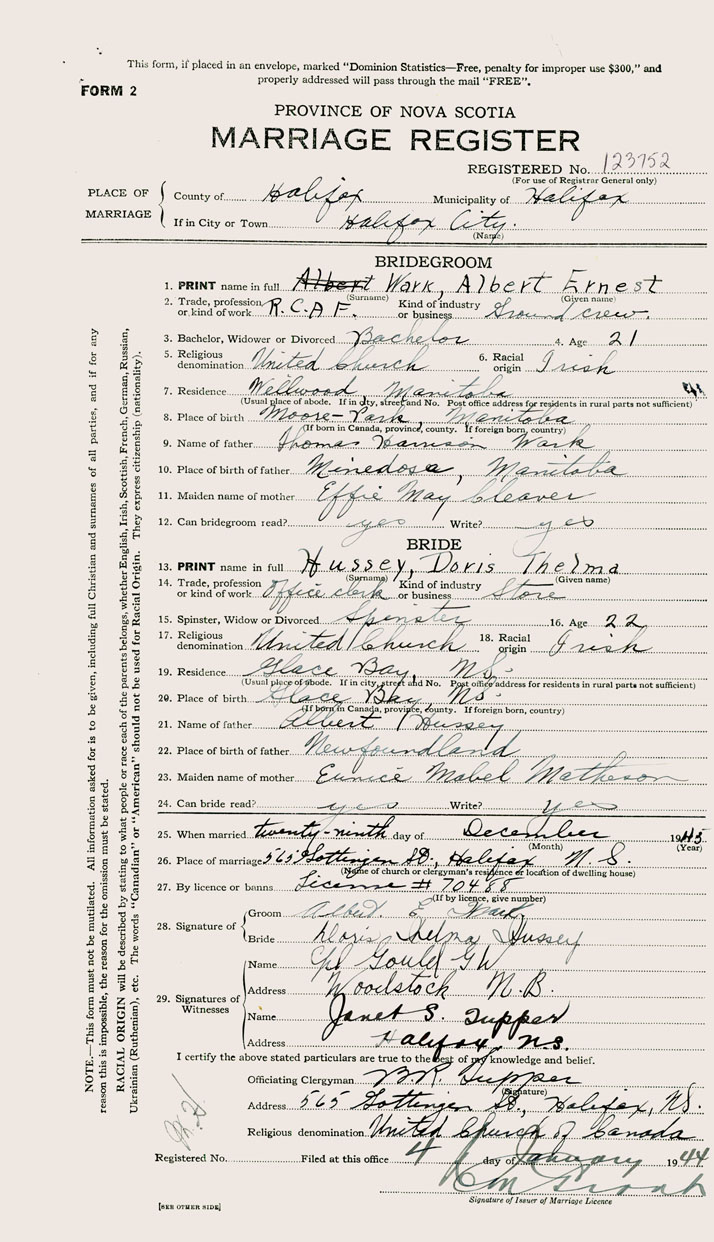 This form, if placed in an envelope, marked "Dominion Statistics—Free, penalty for improper use $300," and
properly addressed will pass through the mail "FREE".
FORM 2
PROVINCE OF NOVA SCOTIA
MARRIAGE REGISTER
REGISTERED No. 123752
(For use of Registrar General only)
PLACE OF MARRIAGE
County of Halifax Municipality of Halifax
If in City or Town Halifax City.
(Name)
BRIDEGROOM
1. PRINT name in full Albert Wark, Albert Ernest
(Surname) (Given name)
2. Trade, profession or kind of work R.C.A.F. Kind of industry or business Ground crew.
3. Bachelor, Widower or Divorced Bachelor 4. Age 21
5. Religious denomination United Church 6. Racial origin Irish
7. Residence Wellwood, Manitoba
(Usual place of abode. If in city, street and No. Post office address for residents in rural parts not sufficient)
8. Place of birth Moore-Park, Manitoba
(If born in Canada, province, county. If foreign born, country)
9. Name of father Thomas Harrison Wark
10. Place of birth of father Minedosa, Manitoba
11. Maiden name of mother Effie May Cleaver
12. Can bridegroom read? yes Write? yes
BRIDE
13. PRINT name in full Hussey, Doris Thelma
(Surname) (Given name)
14. Trade, profession or kind of work Office clerk Kind of industry or business Store
15. Spinster, Widow or Divorced Spinster 16. Age 22
17. Religious denomination United Church 18. Racial origin Irish
19. Residence Glace Bay, N.S.
(Usual place of abode. If in city, street and No. Post office address for residents in rural parts not sufficient)
20. Place of birth Glace Bay, N.S.
(If born in Canada, province, county. If foreign born, country)
21. Name of father Albert Hussey
22. Place of birth of father Newfoundland
23. Maiden name of mother Eunice Mabel Matheson
24. Can bride read? yes Write? yes
25. When married twenty-ninth day of December 19
(Month) (Year)
26. Place of marriage 565 Gottingen St., Halifax N.S.
(Name of church or clergyman's residence or location of dwelling house)
27. By licence or banns License # 70488
(If by licence, give number)
28. Signature of
Groom Albert E. Wark
Bride Doris Thelma Hussey
29. Signatures of Witnesses
Name Cpl Gould GW
Address Woodstock N.B.
Name Janet S. Tupper
Address Halifax, N.S.
I certify the above stated particulars are true to the best of my knowledge and belief.
Officiating Clergyman Tupper
(Signature)
Address 565 Gottingen St., Halifax, N.S.
Religious denomination United Church of Canada
Registered No. Filed at this office 4 day of January 1944
Signature of Issuer of Marriage Licence
[SEE OTHER SIDE]
NOTE.—This form must not be mutilated. All information asked for is to be given, including full Christian and surnames of all parties, and if for any
reason this is impossible, the reason for the omission must be stated.
RACIAL ORIGIN will be described by stating to what people or race each of the parents belongs, whether English, Irish, Scottish, French, German, Russian,
Ukrainian (Ruthenian), etc. The words "Canadian" or "American" should not be used for Racial Origin. They express citizenship (nationality).